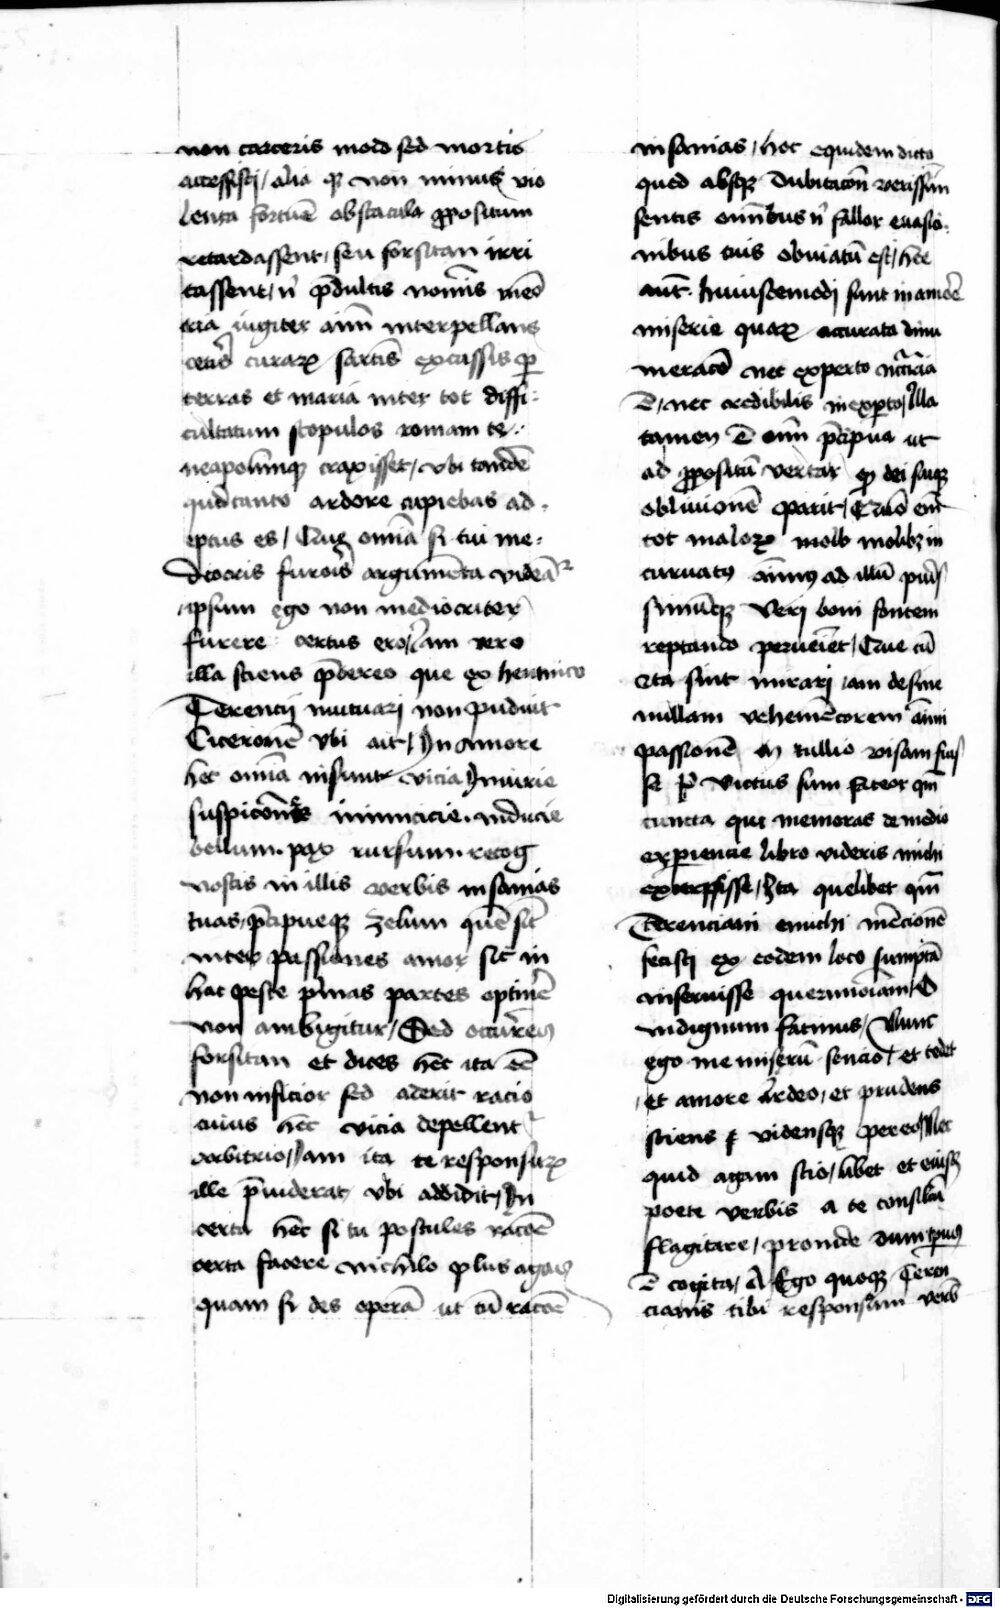 non carceris modo sed mortis
accessisti / alia qz non minus vio
lenta fortune obstacula propositum
retardassent / seu forsitan irri
tassent / ni predulcis nominis memo
ria iugiter aim interpellans
ceteris curarz sartis excussis per
terras et maria inter tot diffi-
cultatum scopulos romam te
neapolimqz traxisset / vbi tandem
quid tanto ardore cupiebas ad-
eptus es / Que omia si tui me-
diocris furoris argumenta videantur
ipsum ego non mediocriter
furere certus ero / Iam vero
illa sciens pretereo que ex heunuco
Terencij mutuari non puduit
Ciceronē vbi ait / In amore
hec omia insunt vicia Iniurie
suspiciones inimicicie. inducie
bellum. pax rursum. recog
noscis in illis verbis insanias
tuas / precipueqz zelum quē sic
inter passiones amor sic in
hac peste primas partes optinere
non ambigitur / Sed occurres
forsitan et dices hec ita esse
non inficior sed aderit racio
cuius hec vicia depellent
arbitrio / Iam ita te responsurz
ille preuiderat vbi addidit / In
certa hec si tu postules racōe
certa facere nichilo plus agas
quam si des operā ut cū racōe
insanias / hoc equidem dicto
quod absqz dubitacōn verissim
sentis omnibus ni fallor euasio-
nibus tuis obuiatū est / hee
aut. huiuscemodi sunt in amore
miserie quarz accurata dinu
meracō nec experto necessaria
ē / nec credibilis inexperto / Illa
tamen ē oim precipua ut
ad propositū vertar qz dei suiqz
obliuionē parit / Quō eni
tot malorz molb
curuatus animus ad illū
simumqz veri boni fontem
reptando perueniet / Que cū
ita sint mirari iam desine
nullam vehemēciorem aīmi
passionē tullio visam fuis
se Pe victus sum fateor qm
cuncta que memoras de medio
experiencie libro videris michi
excerpsisse / Ita quelibet qm
Terenciani eunuchi mēcionē
fecisti ex eodem loco sumptā
inseruisse querimoniam / O
indignum facinus / Nunc
ego me miserū sencio / et tedet
/ et amore ardeo / et prudens
sciens vidensqz pereo / Nec
quid agam scio / libet et eiusdem
poete verbis a te consilia
flagitare / proinde dum tempus
ē cogita / A / Ego quoqz Teren
cianis tibi responsum verb
Digitalisierung gefördert durch die Deutsche Forschungsgemeinschaft - DFG